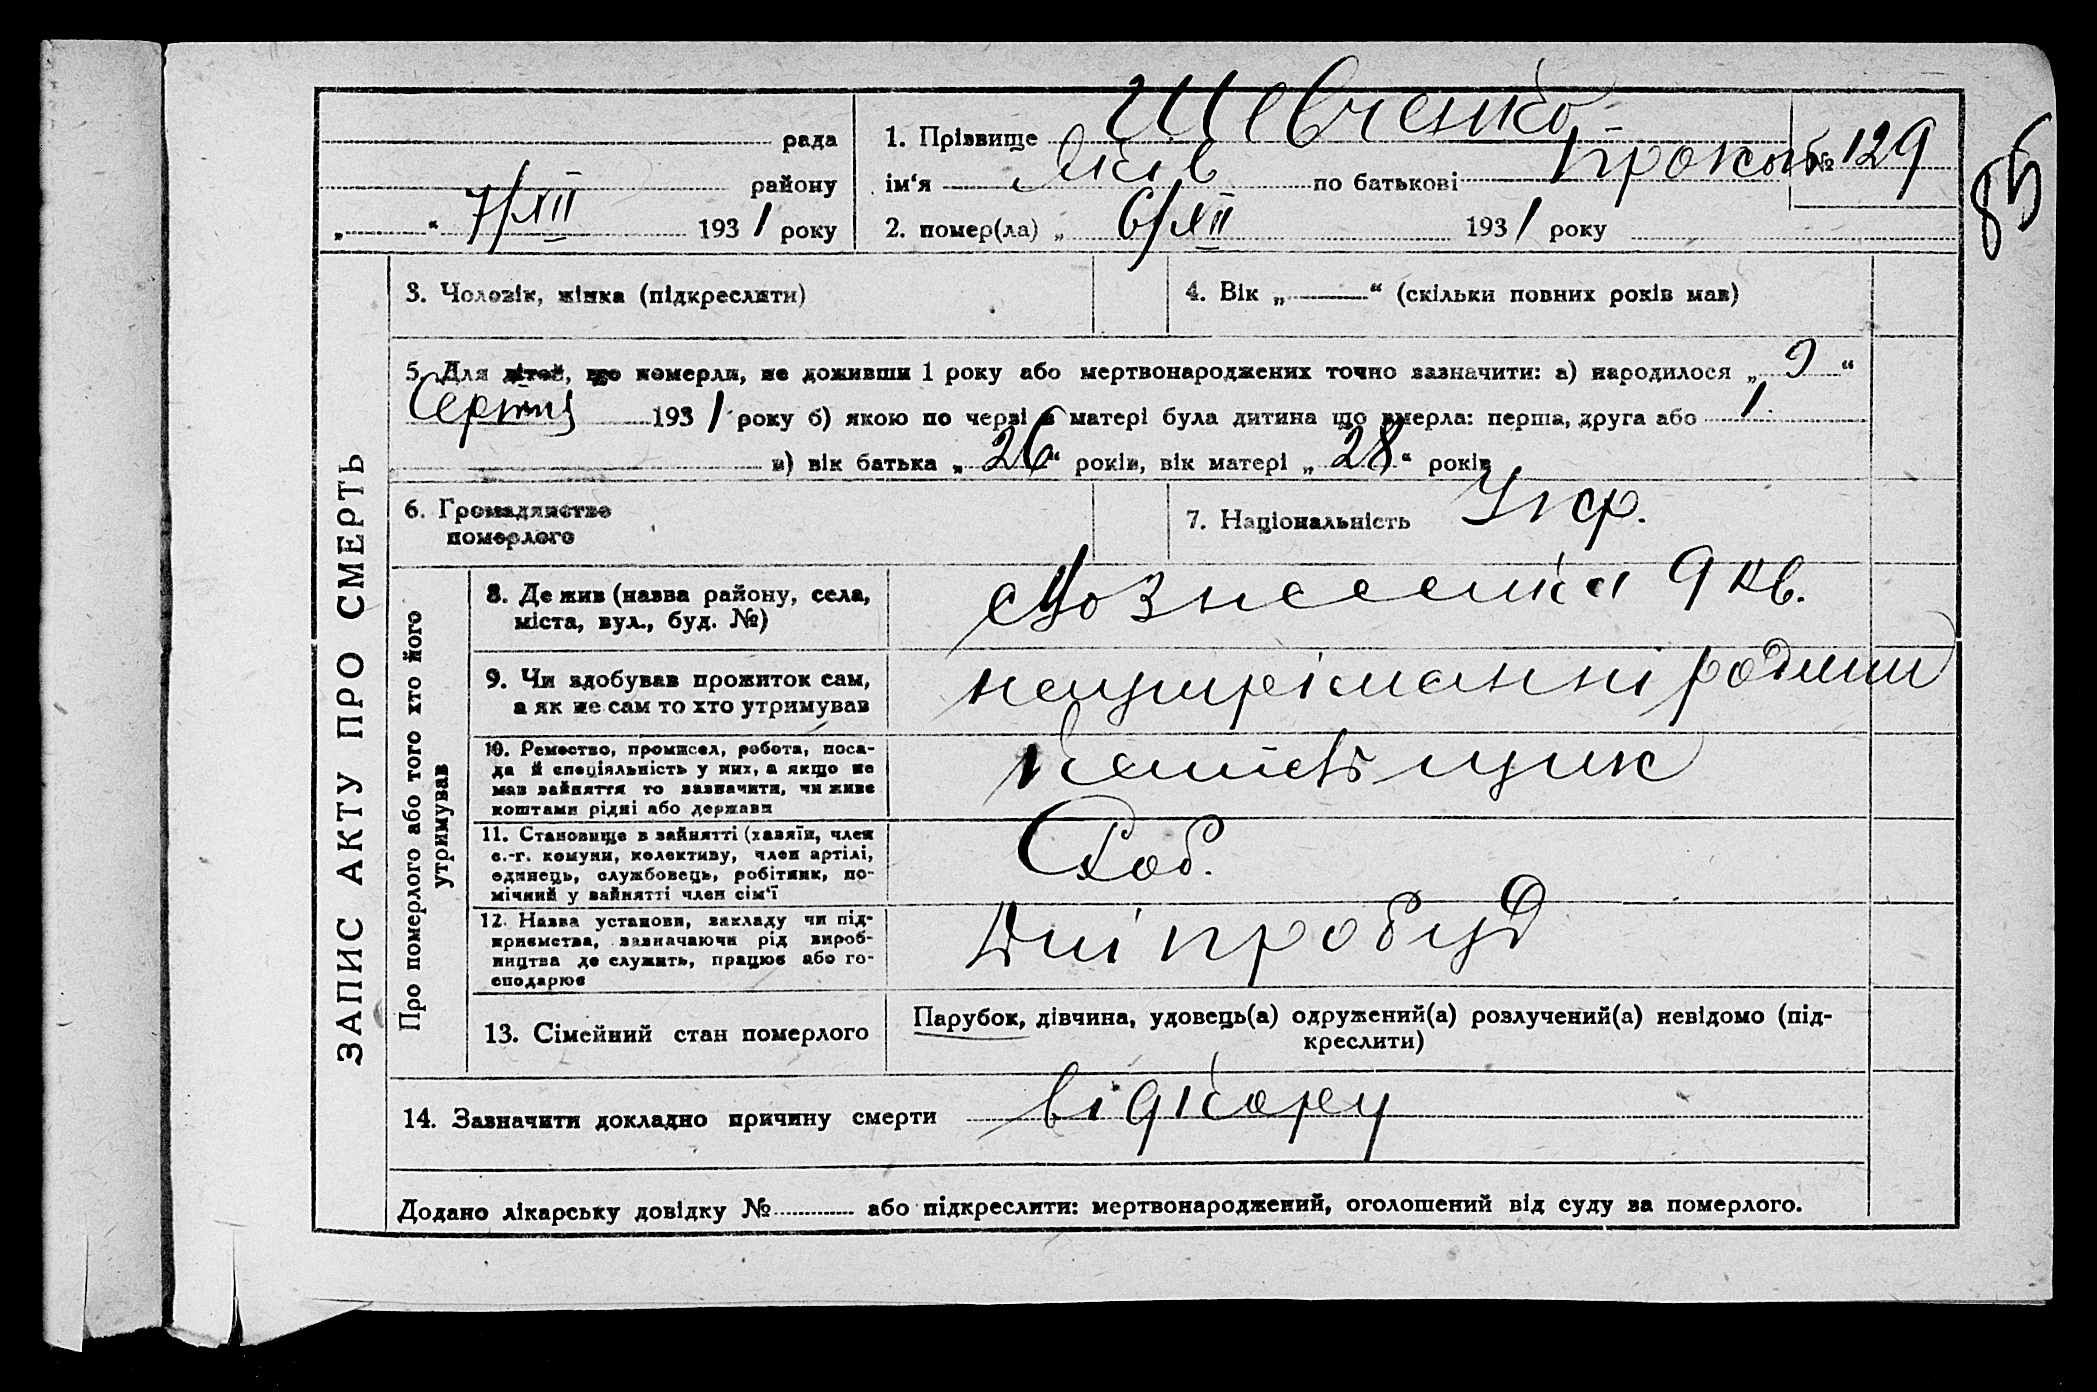 Шевченко
рада
1. Прізвище
№ 129
району
ім'я Яків по батькові Прокоп
86
„ “ 7/XII 1931 року
2. помер(ла) „ 6/XII 1931 року
3. Чоловік, жінка (підкреслити)
4. Вік „ “ (скільки повних років мав)
5. Для дітей, що померли, не доживши 1 року або мертвонароджених точно зазначити: а) народилося „ 9 “
Серпня 1931 року б) якою по черзі в матері була дитина що вмерла: перша, друга або 1
в) вік батька „ 26 “ років, вік матері „ 28 “ років
6. Громадянство
померлого
7. Національність Укр.
ЗАПИС АКТУ ПРО СМЕРТЬ
Про померлого або того хто його
утримував
8. Де жив (назва району, села,
міста, вул., буд. №)
Вознесенка 9 кв.
9. Чи здобував прожиток сам,
а як не сам то хто утримував
на утріманні родини
10. Ремество, промисел, робота, поса-
да й спеціяльність у них, а якщо не
мав зайняття то зазначити, чи живе
коштами рідні або держави
11. Становище в зайнятті (хазяїн, член
с.-г. комуни, колективу, член артілі,
одинець, службовець, робітник, по-
мічний у зайнятті член сім'ї
Роб.
12. Назва установи, закладу чи під-
приємства, зазначаючи рід вироб-
ництва де служить, працює або го-
сподарює
Дніпробуд
13. Сімейний стан померлого
Парубок, дівчина, удовець(а) одружений(а) розлучений(а) невідомо (під-
креслити)
14. Зазначити докладно причину смерти від кору
Додано лікарську довідку № або підкреслити: мертвонароджений, оголошений від суду за померлого.